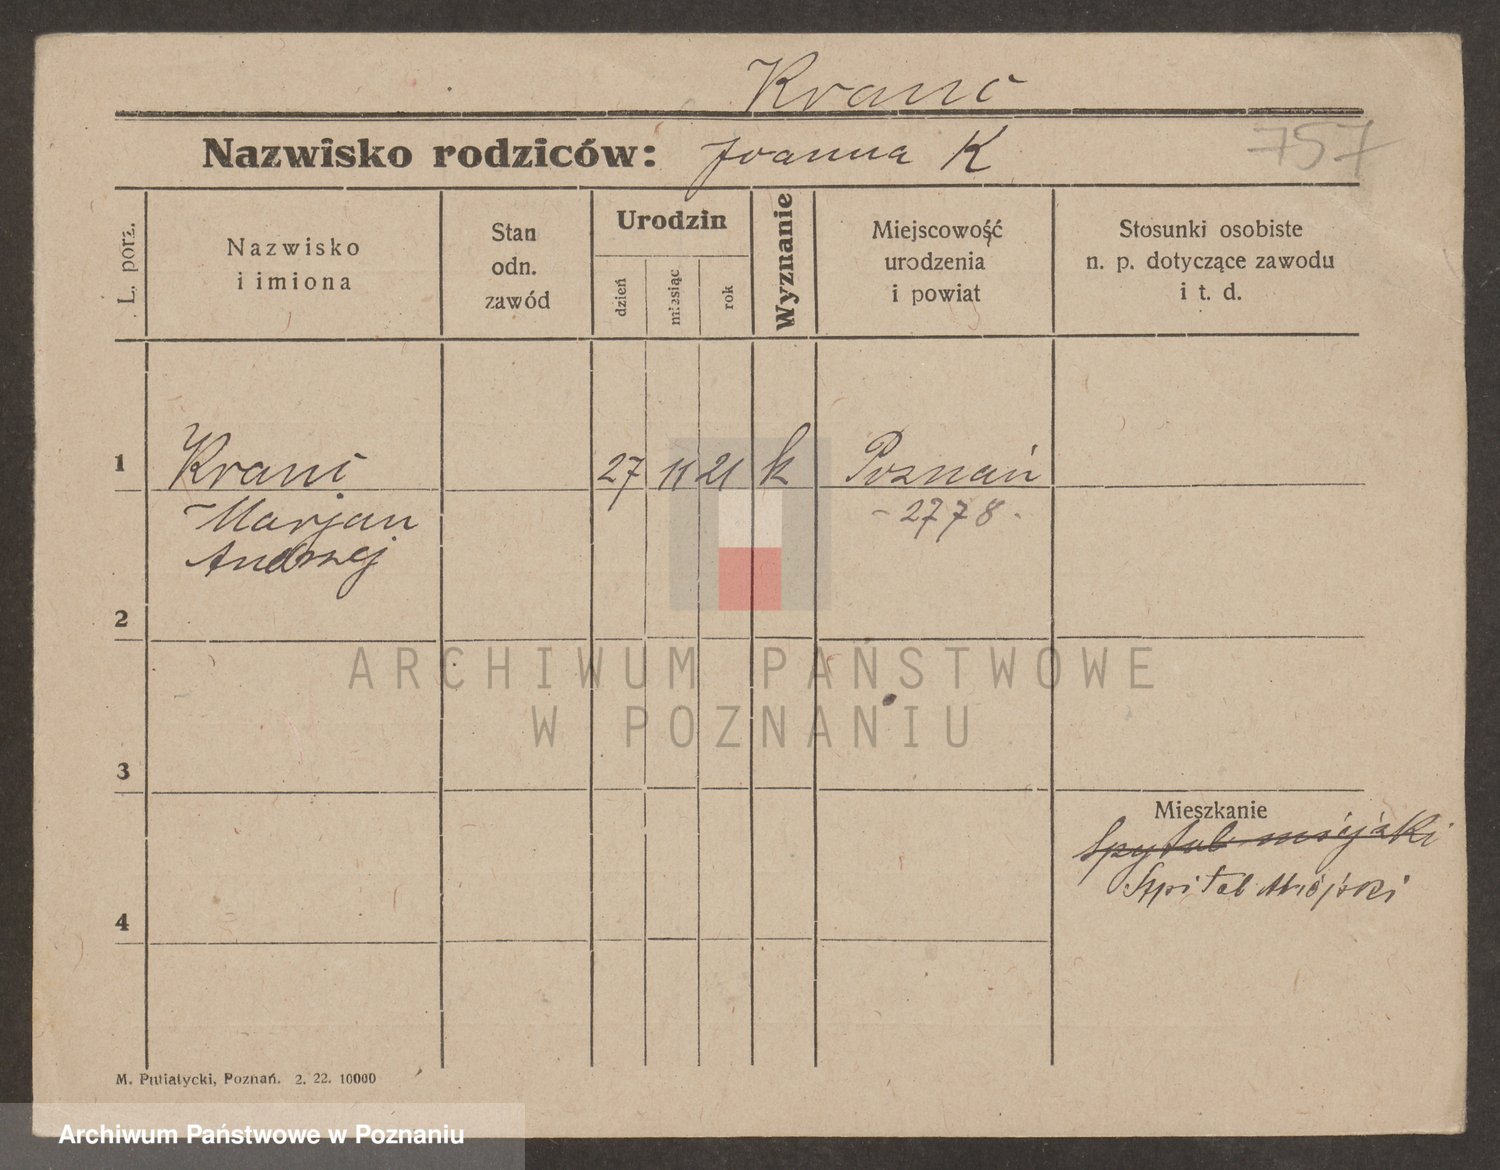 Kranc
Nazwisko rodziców: Joanna K
757
L. porz.
Nazwisko
i imiona
Stan
odn.
zawód
Urodzin
dzień
miesiąc
rok
Wyznanie
Miejscowość
urodzenia
i powiat
Stosunki osobiste
n. p. dotyczące zawodu
i t. d.
1 Kranc 27 11 21 k Poznań
Marjan - 2778 -
Andrzej
2
ARCHIWUM PAŃSTWOWE
W POZNANIU
3
Mieszkanie
Spytal miejski
Szpital Miejski
4
M. Putiatycki, Poznań. 2. 22. 10000
Archiwum Państwowe w Poznaniu